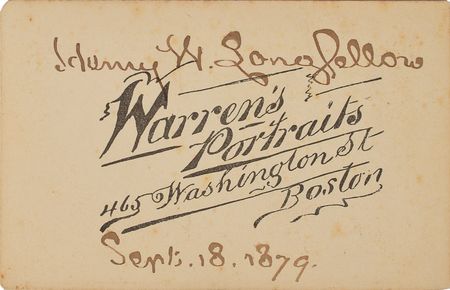 Henry W. Longfellow
Warren's
Portraits
465 Washington St
Boston
Sept. 18. 1879.